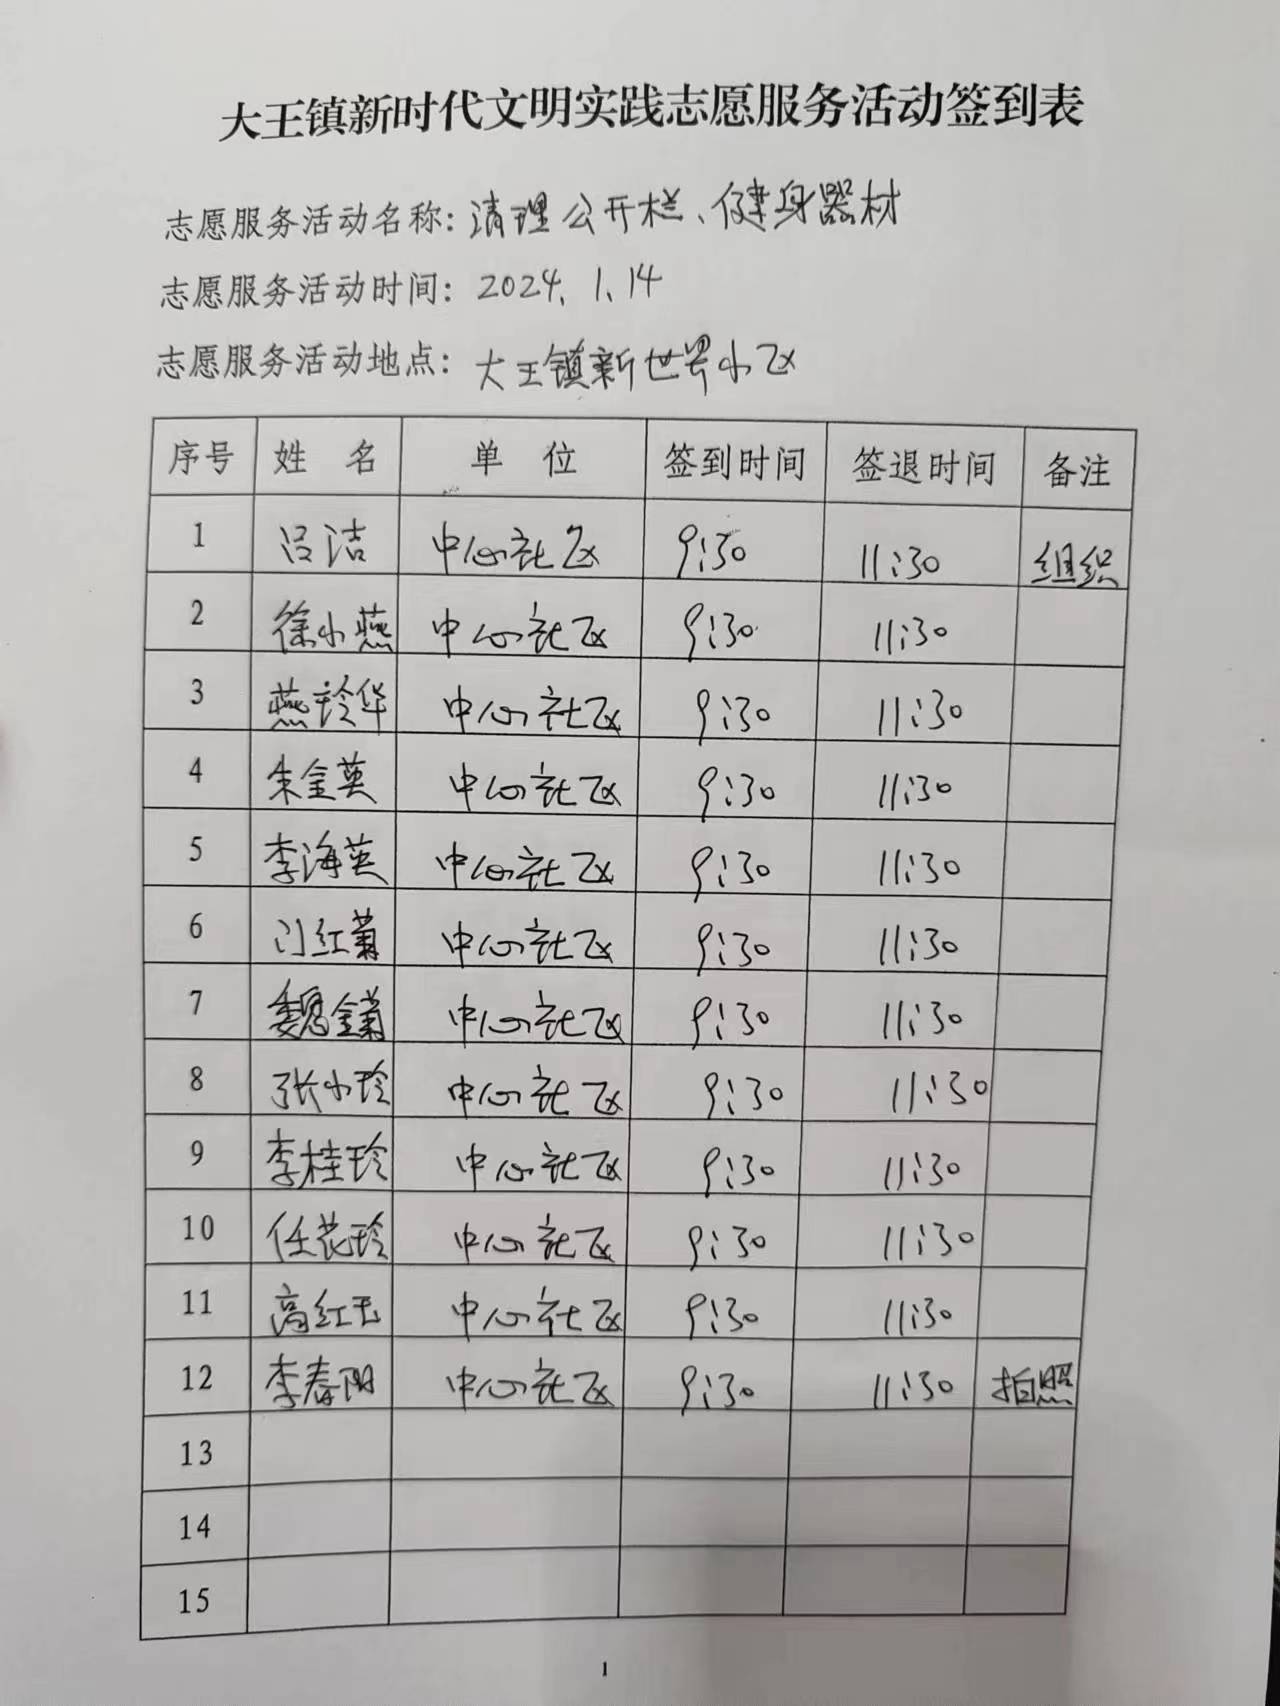 大王镇新时代文明实践志愿服务活动签到表
志愿服务活动名称：清理公开栏、健身器材
志愿服务活动时间：2024.1.14
志愿服务活动地点：大王镇新世界小区
序号 姓名 单位 签到时间 签退时间 备注
1 吕洁 中心社区 9:30 11:30 组织
2 徐小燕 中心社区 9:30 11:30
3 燕玲华 中心社区 9:30 11:30
4 朱金英 中心社区 9:30 11:30
5 李海英 中心社区 9:30 11:30
6 门红菊 中心社区 9:30 11:30
7 魏金菊 中心社区 9:30 11:30
8 张小玲 中心社区 9:30 11:30
9 李桂玲 中心社区 9:30 11:30
10 任花玲 中心社区 9:30 11:30
11 高红玉 中心社区 9:30 11:30
12 李春阳 中心社区 9:30 11:30 拍照
13
14
15
1